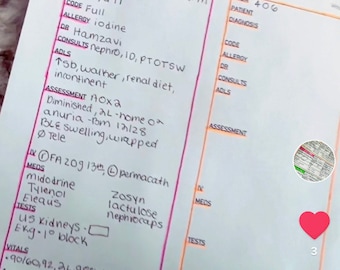 CODE Full
ALLERGY iodine
DR Hamzavi
CONSULTS nephro, ID, PT OT SW
ADLS
↑SB, walker, renal diet,
incontinent
ASSESSMENT AOX2
Diminished, 2L - home O2
anuria - BM 12/28
BLE swelling, wrapped
Ø Tele
IV FA 20g 13th permacath
MEDS
midodrine
Tylenol
Eliquis
Zosyn
lactulose
nephrocaps
TESTS
US Kidneys -
EKG - 1° block
VITALS
90/60, 92, 2L
406
PATIENT
DIAGNOSIS
CODE
ALLERGY
DR
CONSULTS
ADLS
ASSESSMENT
IV
MEDS
TESTS
3